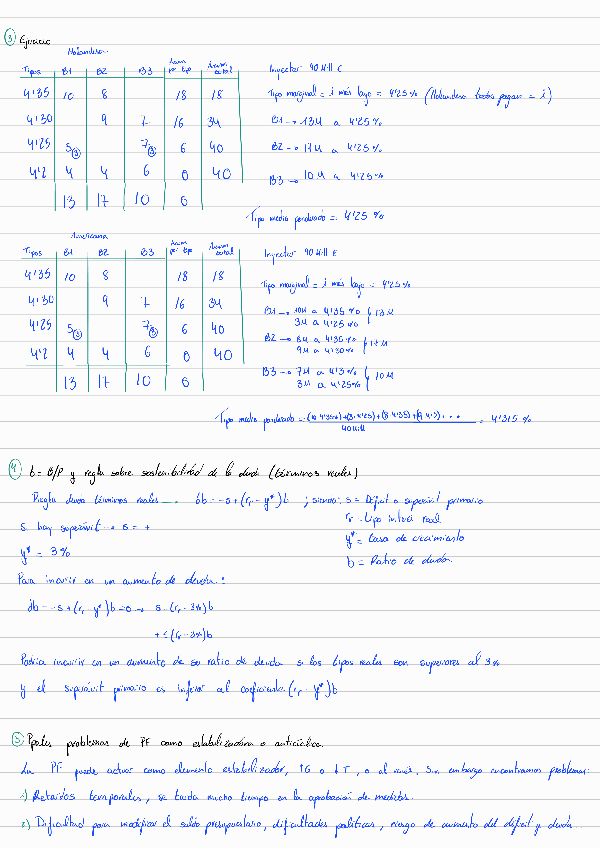 3) Ejercicio
Holandesa
Tipos B1 B2 B3 Acum por tipo Acum total
4'35 10 8 18 18
4'30 9 7 16 34
4'25 5 (3) 7 (3) 6 40
4'2 4 4 6 0 40
13 17 10 0
Inyectar 40 Mill €
Tipo marginal = i más bajo = 4'25% (Holandesa todos pagan = i)
B1 → 13M a 4'25%
B2 → 17M a 4'25%
B3 → 10M a 4'25%
Tipo medio ponderado = 4'25%
Americana
Tipos B1 B2 B3 Acum por tipo Acum total
4'35 10 8 18 18
4'30 9 7 16 34
4'25 5 (3) 7 (3) 6 40
4'2 4 4 6 0 40
13 17 10 0
Inyectar 40 Mill €
Tipo marginal = i más bajo = 4'25%
B1 → 10M a 4'35% } 13M
3M a 4'25%
B2 → 8M a 4'35% } 17M
9M a 4'30%
B3 → 7M a 4'3% } 10M
3M a 4'25%
Tipo medio ponderado = (10·4'35)+(3·4'25)+(8·4'35)+(9·4'3)... / 40 Mill = 4'315%
4) b = B/P y regla sobre sostenibilidad de la deuda (términos reales)
Regla deuda términos reales → db = -s + (r - y*)b ; siendo: s = Déficit o superávit primario
Si hay superávit → s = +
r = tipo interés real
y* = 3%
y* = tasa de crecimiento
b = Ratio de deuda
Para incurrir en un aumento de deuda:
db = -s + (r - y*)b = 0 → s = (r - 3%)b
+ < (r - 3%)b
Podría incurrir en un aumento de su ratio de deuda si los tipos reales son superiores al 3%
y el superávit primario es inferior al coeficiente (r - y*)b
5) Ppales problemas de PF como estabilizadora o anticíclica
La PF puede actuar como elemento estabilizador, ↑G o ↓T, o al revés. Sin embargo encontramos problemas:
1) Retardos temporales, se tarda mucho tiempo en la aprobación de medidas.
2) Dificultad para modificar el saldo presupuestario, dificultades políticas, riesgo de aumento del déficit y deuda...